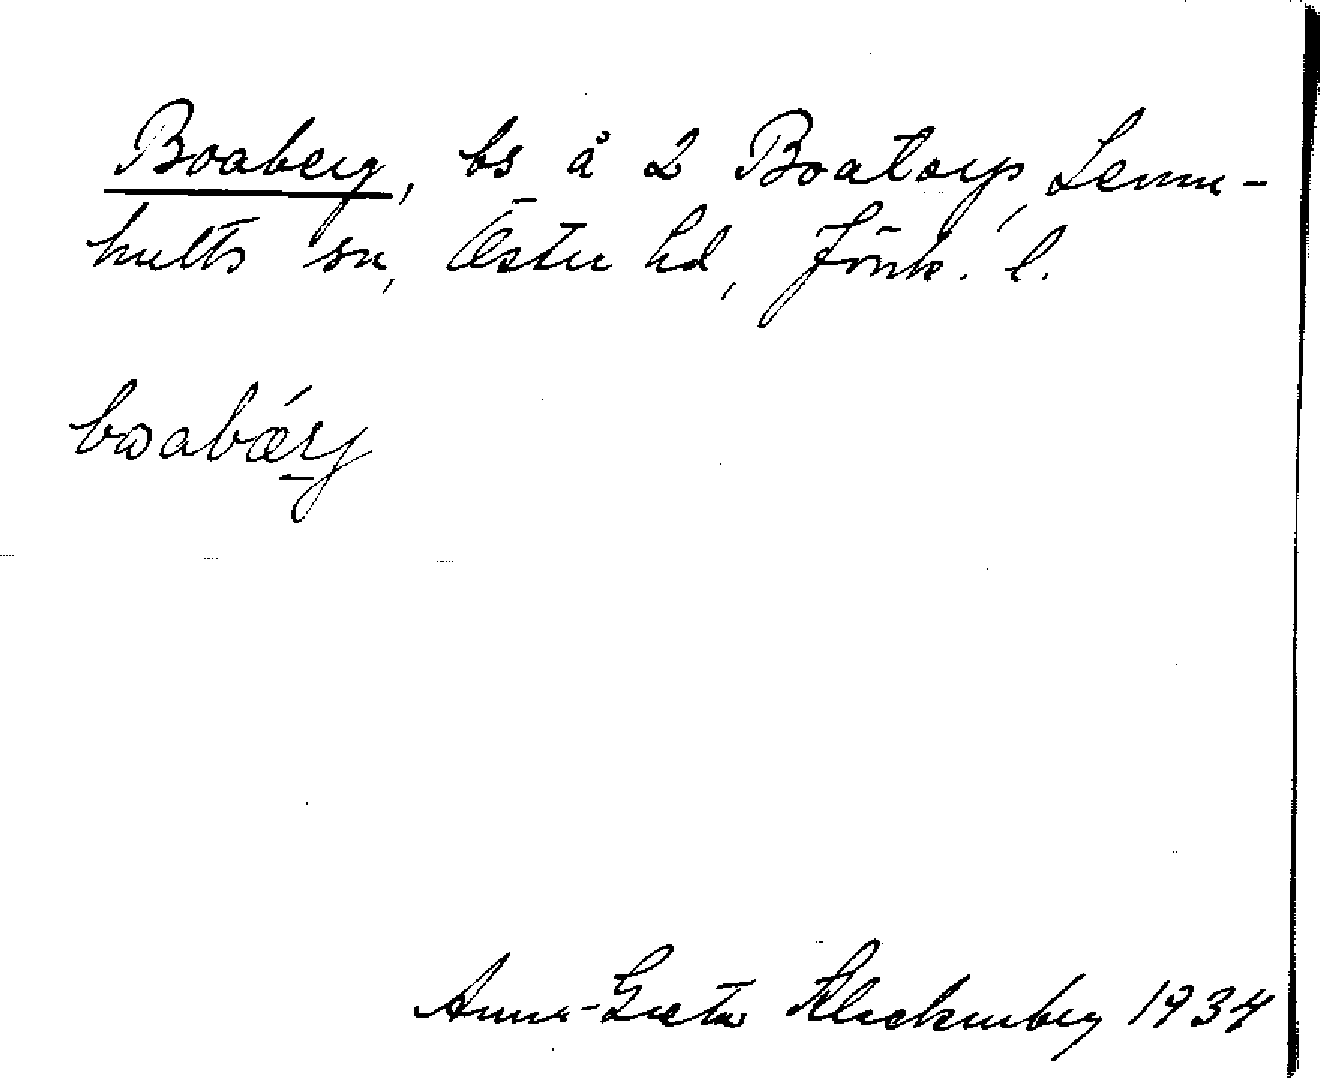 Boaberg, bs å 2 Boatorp, Lenn-
hults sn, Östra hd, Jönk. l.
boabærj
Anna-Greta Klackenberg 1934